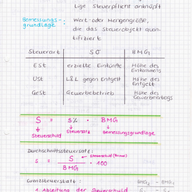 die Steuerpflicht anknüpft
Bemessungs-
grundlage
Wert- oder Mengengröße,
die das Steuerobjekt quan-
tifiziert
Steuerart SO BMG
ESt erzielte Einkünfte Höhe des
Einkommens
USt LEL gegen Entgelt Höhe des
Entgelts
GewSt Gewerbebetrieb Höhe des
Gewerbeertrags
S = SZ · BMG
Steuerschuld Steuersatz Bemessungsgrundlage
Durchschnittssteuersatz:
· 100
BMG
Grenzsteuersatz:
Ableitung der Steuerschuld